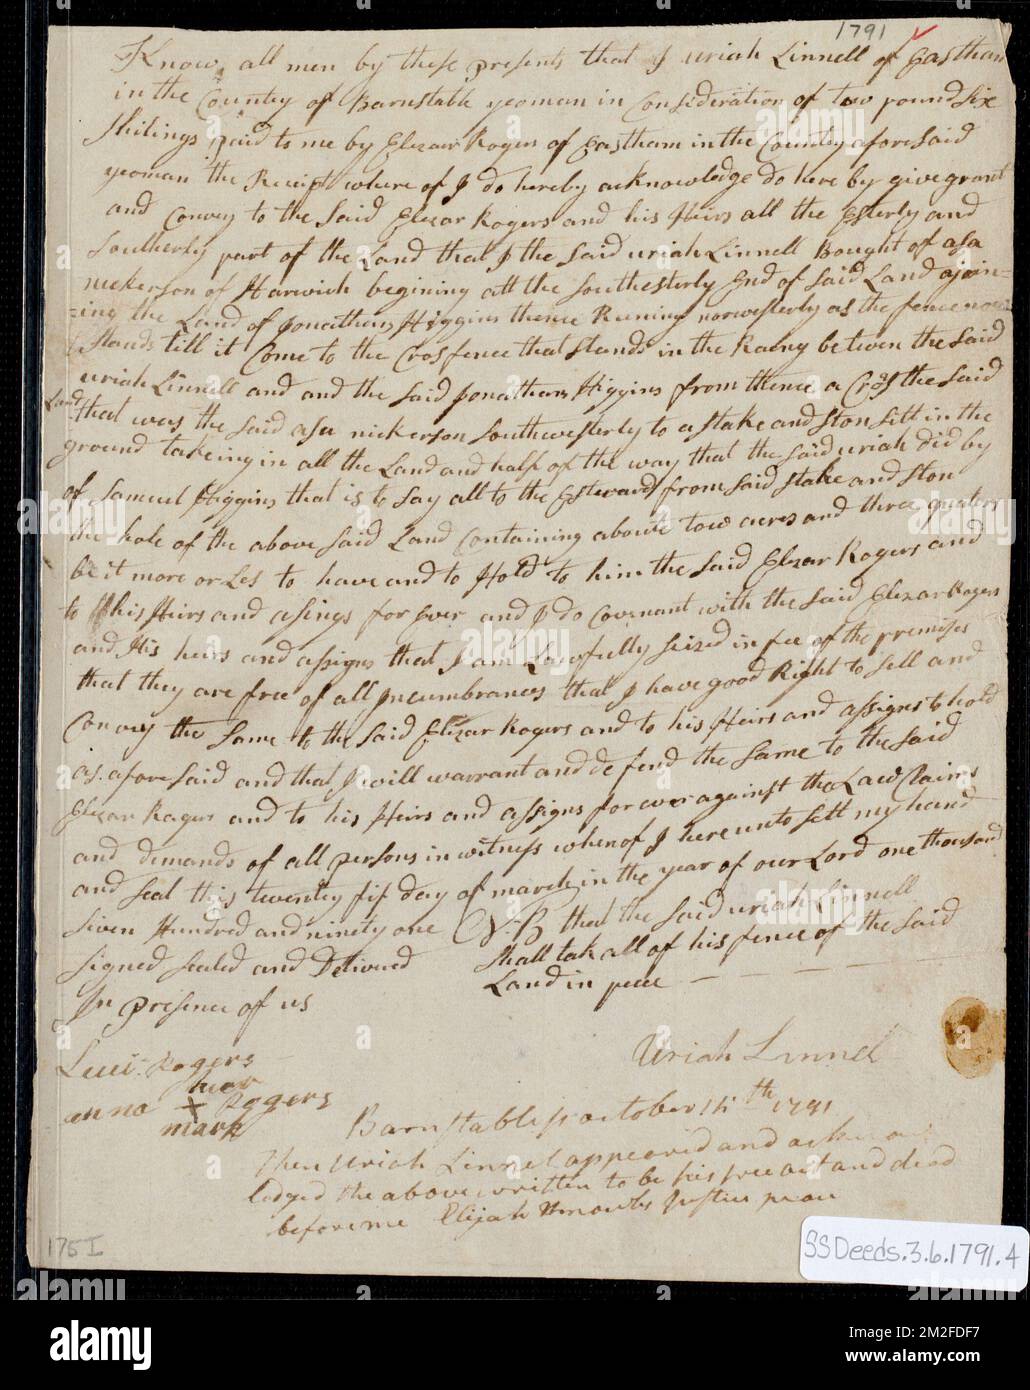 1791
Know all men by these presents that I uriah Linnell of Eastham
in the County of Barnstable yeoman in Consideration of two pound six
Shilings paid to me by Elezar Rogers of Eastham in the County afore Said
yeoman the Receipt where of I do hereby acknowledge do here by give grant
and Convey to the Said Elezar Rogers and his Heirs all the Esterly and
Southerly part of the Land that I the Said uriah Linnell Bought of asa
nickerson of Harwich begining att the Southesterly End of Said Land ajoin=
=ing the Land of Jonathan Higgins thence Runing norwesterly as the fence now
Stands till it Come to the Cros fence that Stands in the Rainy betwen the Said
uriah Linnell and and the Said Jonathan Higgins from thence a Cros the Said
Land that was the Said asa nickerson Southwesterly to a Stake and Ston Sitt in the
ground takeing in all the Land and half of the way that the Said uriah did by
of Samuel Higgins that is to Say all to the Esteward from Said Stake and Ston
the hole of the above Said Land Containing aboute tow acres and three quaters
be it more or Les to have and to Hold to him the Said Elezar Rogers and
to his Heirs and asings for Ever and I do Covenant with the Said Elezar Rogers
and His heirs and assigns that I am Lawfully Seized in fee of the premises
that they are free of all Incumbrances that I have good Right to Sell and
Convey the Same to the Said Elezar Rogers and to his Heirs and assigns to hold
as afore Said and that I will warrant and defend the Same to the Said
Elezar Ragers and to his Heirs and assigns for ever against the Law Claims
and demands of all persons in witness whereof I here unto Sett my hand
and Seal this twenty fif day of march in the year of our Lord one thousand
Siven Hundred and ninity one N.B that the Said uriah Linnell
Signed Sealed and Delivered Shall tak all of his fence of the Said
In Presence of us Land in pece
Uriah Linnel
Rogers
anna her Rogers
+
mark
Barnstable ss october 15th 1791
then Uriah Linnel appeared and acknow
ledged the above written to be his free act and deed
before me Elijah Justice peace
175 I
SSDeeds.3.6.1791.4
alamy
alamy
Image ID: 2M2FDF7
www.alamy.com